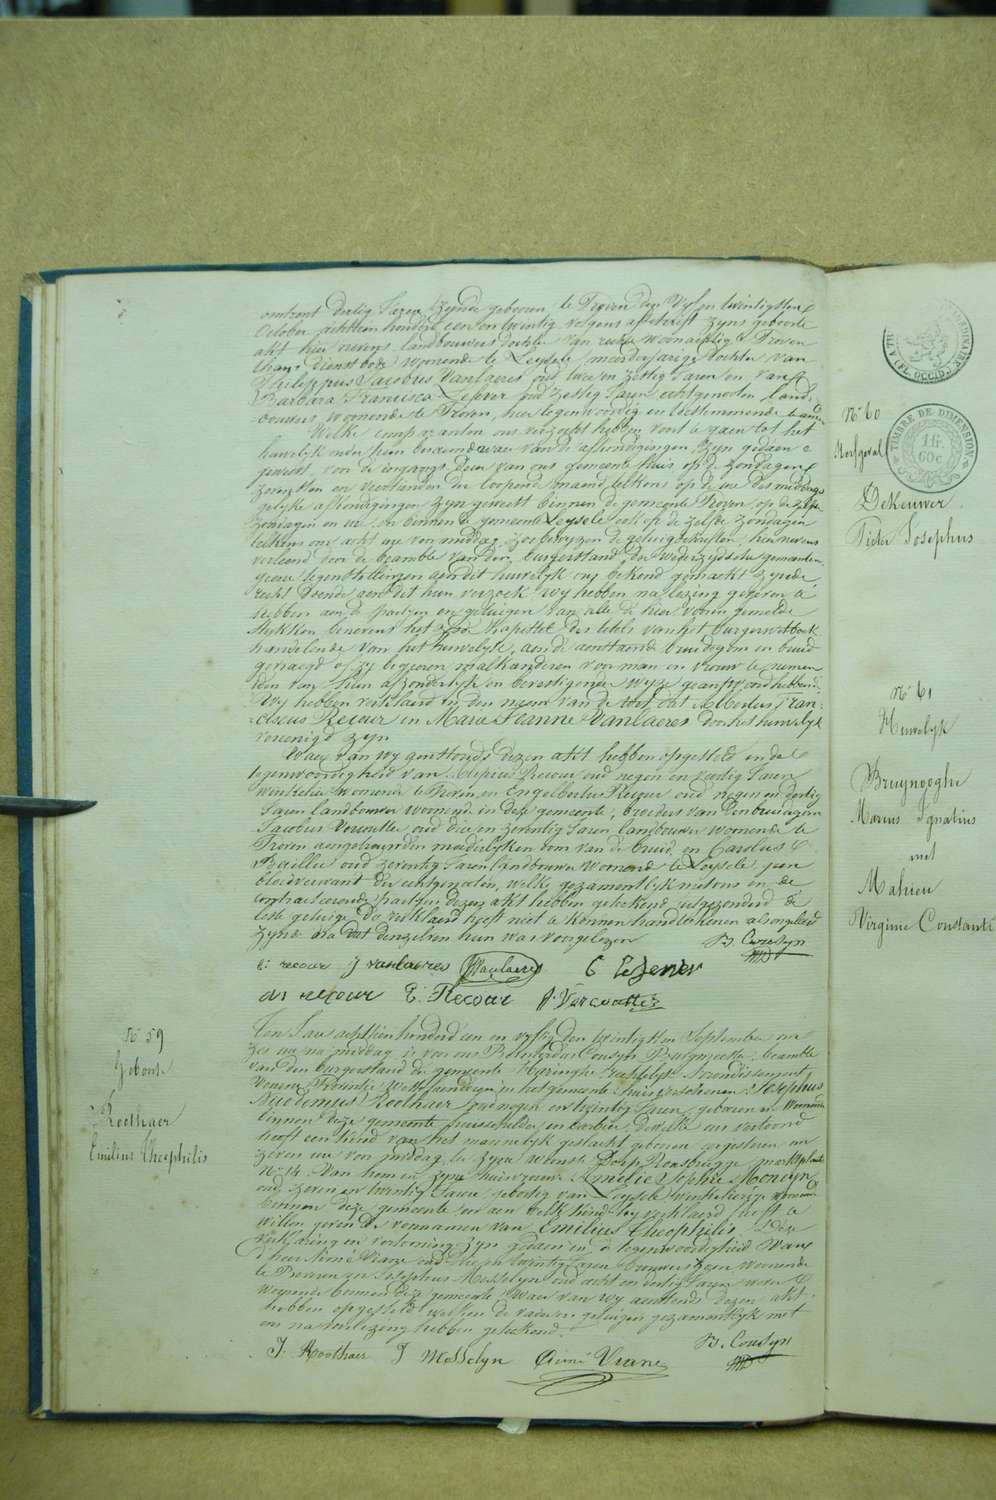 omtrent dertig Jaren zynde geboren te Proven den vyf en twintigsten
October achttien honderd een en twintig volgens afschrift zyns geboorte
akt hier nevens, landbouwers dochter van rechte woonachtig te Proven
thans dienstbode woonende te Leysele, meerderjarige dochter van
Philippus Jacobus Vanlaeres oud twee en zestig Jaren en van
Barbara Francisca Lefever oud zestig Jaren echtgenoten land-
bouwers woonende te Proven, hier tegenwoordig en toestemmende
Welke comparanten ons verzocht hebben voort te gaen tot het
huwelyk onder hun beraemd waer van de afkondigingen zyn gedaen
geweest, voor de ingangs deur van ons gemeente huis op de zondagen
zeventien en vier en twintig der loopende maend telkens op de ure des middags
gelyke afkondigingen zyn geweest binnen de gemeente Proven op de zelfde
zondagen en ure en binnen te gemeente Leysele ook op de zelfde zondagen
telkens om acht ure voormiddag, zoo bewyzen de getuigschriften hier nevens
verleend door de beambte van den burgerstand der wederzydsche gemeenten
geene tegenstellingen aen dit huwelyk ons bekend gemaekt zynde
recht doende aen dit hun verzoek wy hebben na lezing gegeven te
hebben aen de partyen en getuigen van alle de hier voren gemelde
stukken benevens het zesde kapittel des titels van het burgerwetboek
handelende van het huwelyk, aen de aenstaende bruidegom en bruid
gevraegd of zy begeeren malkanderen voor man en vrouw te nemen
ider van hun afzonderlyk en bevestigender wyze geantwoord hebbende
Wy hebben verklaerd in den naem van de wet dat Albertus Fran-
ciscus Recour en Maria Jeanne Vanlaeres door het huwelyk
vereenigd zyn
Waer van wy aenthonds dezen akt hebben opgesteld in de
tegenwoordigheid van Recour oud negen en zestig Jaren
winkelier woonende te Proven en Engelbertus Recour oud negen en dertig
Jaren landbouwer woonende in deze gemeente, broeders van den bruidegom
Jacobus Vercoutter oud drie en zeventig Jaren landbouwer woonende te
Proven aengetrouwden moederlyken oom van de bruid en Carolus
Baillie oud zeventig Jaren landbouwer woonende te Leysele geen
bloedverwant der echtgenoten, welke gezamentlyk met ons en de
contracteerende partyen dezen akt hebben geteekend uitgezonderd de
leste getuige die verklaerd heeft niet te konnen handteekenen als ongeleerd
zynde na dat denzelven hun was voorgelezen
B. Cousyn
a: recour j vanlaeres JVanlaeres C Lefever
as recour E. Recour J. Vercoutter
N° 59
Geboorte
Roothaer
Emilius Theophilis
Ten Jare achttien honderd een en vyftig den twintigsten September om
zes ure na middag is voor ons Bernardus Cousyn Burgmeester, beambte
van den burgerstand de gemeente Haringhe rechtelyk Arrondissement
Veurne Provintie West-Vlaenderen in het gemeente huis verschenen Josephus
Nicodemus Roothaer oud negen en twintig Jaren, geboren en woonende
binnen deze gemeente huisschilder en barbier, dewelke ons vertoond
heeft een kind van het mannelyk geslacht geboren eergisteren om
zeven ure voor middag, te zyner woonst Dorp Roesbrugge marktplaets
N° 14. van hem en zyne huisvrouwe Amelie Sophie Moncyn
oud zeven en twintig Jaren geboortig van Leysele winkelierige woonende
binnen deze gemeente en aen welk kind hy verklaerd heeft te
willen geven de voornamen van Emilius Theophilis. Deze
verklaring en vertooning zyn gedaen in de tegenwoordigheid van
d'heer Aimé Viane oud dry en twintig Jaren brouwers zoon woonende
te Proven en Josephus Messelyn oud acht en dertig Jaren wever
woonende binnen deze gemeente. Waer van wy aenthonds dezen akt
hebben opgesteld welken de vader en getuigen gezamentlyk met
ons na voorlezing hebben geteekend
B. Cousyn
J. Roothaer J Messelyn Aimé Viane
TIMBRE DE DIMENSION
1 fr.
60 c
N° 60
Sterfgeval
Dekeuwer
Pieter Josephus
N° 61
Huwelyk
Bruynooghe
Marius Ignatius
met
Mahieu
Virginie Constantia